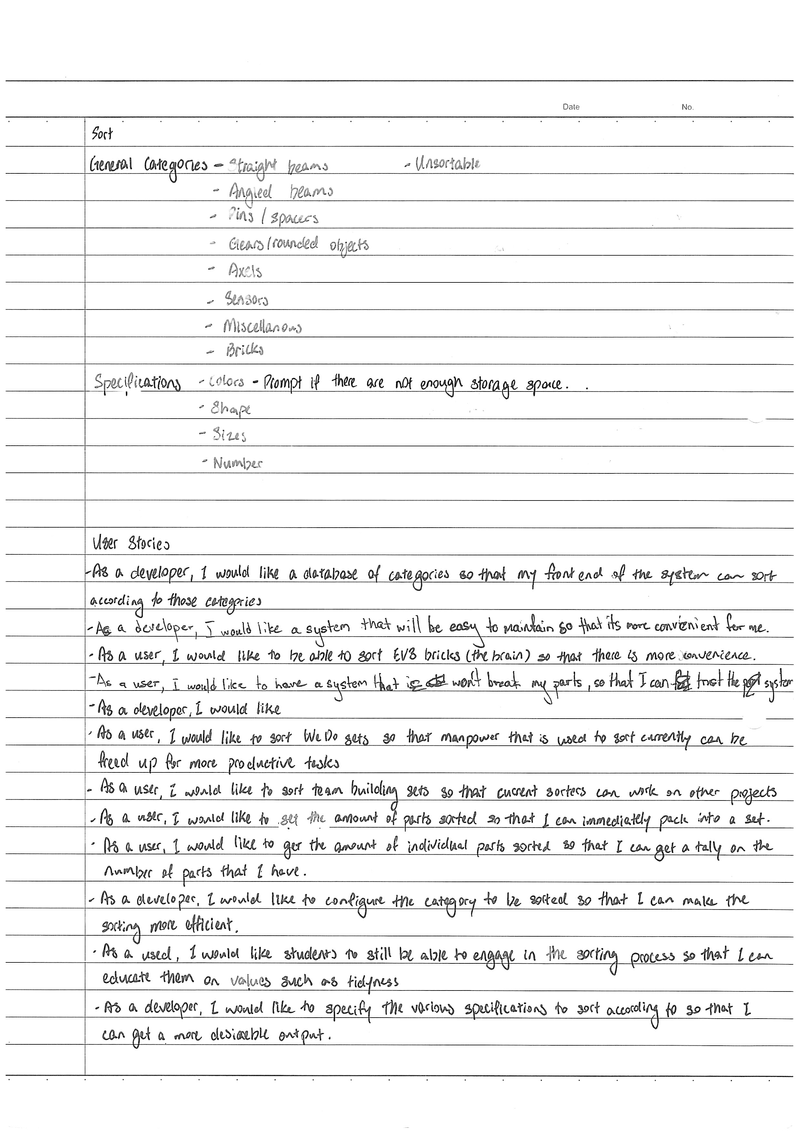 Date No.
Sort
General Categories - Straight beams - Unsortable
- Angled beams
- Pins / spacers
- Gears/rounded objects
- Axels
- Sensors
- Miscellanous
- Bricks
Specifications - colors - Prompt if there are not enough storage space. .
- Shape
- Sizes
- Number
User Stories
- As a developer, I would like a database of categories so that my front end of the system can sort
according to those categories
- As a developer, I would like a system that will be easy to maintain so that its more convienient for me.
- As a user, I would like to be able to sort EV3 bricks (the brain) so that there is more convenience.
- As a user, I would like to have a system that won't break my parts, so that I can trust the system
- As a developer, I would like
- As a user, I would like to sort WeDo sets so that manpower that is used to sort currently can be
freed up for more productive tasks
- As a user, I would like to sort team building sets so that current sorters can work on other projects
- As a user, I would like to set the amount of parts sorted so that I can immediately pack into a set.
- As a user, I would like to get the amount of individual parts sorted so that I can get a tally on the
number of parts that I have.
- As a developer, I would like to configure the category to be sorted so that I can make the
sorting more efficient.
- As a used, I would like students to still be able to engage in the sorting process so that I can
educate them on values such as tidyness
- As a developer, I would like to specify the various specifications to sort according to so that I
can get a more desireable output.